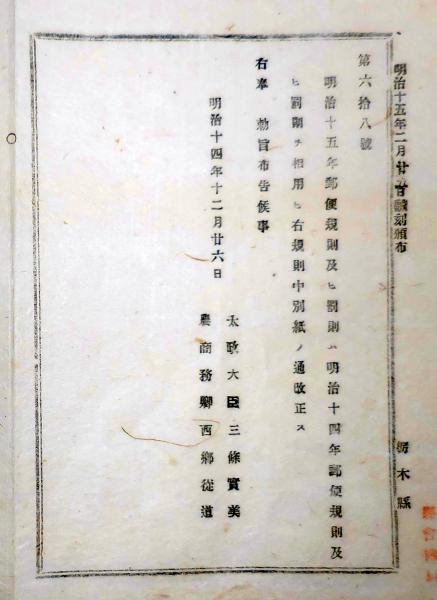 明治十五年二月廿 日飜刻頒布
栃木縣
第六拾八號
明治十五年郵便規則及ヒ罰則ハ明治十四年郵便規則及
ヒ罰則ヲ相用ヒ右規則中別紙ノ通改正ス
右奉　勅旨布告候事
明治十四年十二月廿六日
太政大臣三條實美
農商務卿西鄕從道